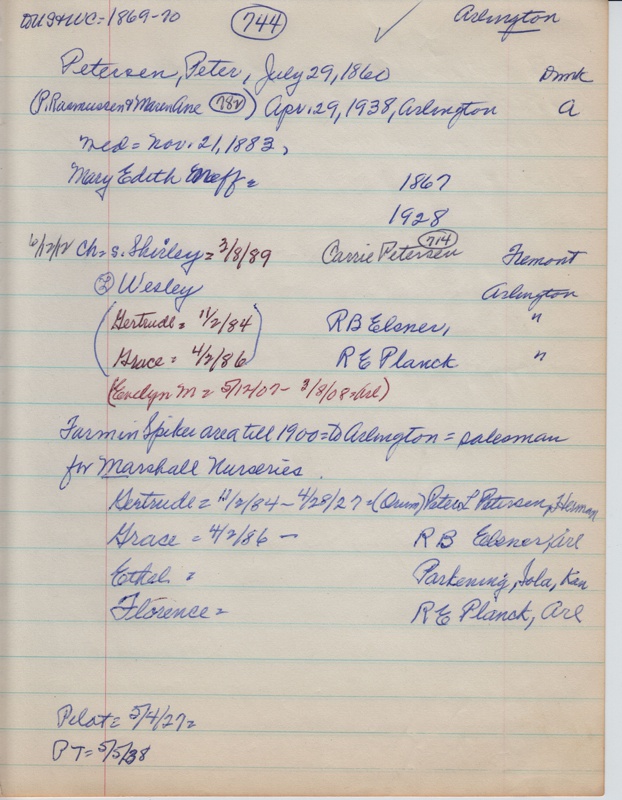 to US & WC = 1869-70 744 Arlington
Petersen, Peter, July 29, 1860 Dnmk
(P. Rasmussen & Maren Ane 782) Apr. 29, 1938, Arlington A
med = Nov. 21, 1883,
Mary Edith Neff = 1867
1928
6/12/12 Ch = s. Shirley = 3/8/89 Carrie Petersen 714 Fremont
② Wesley Arlington
(Gertrude = 11/2/84 R B Elsner, "
Grace = 4/2/86) R E Planck "
(Evelyn M = 5/12/07 - 3/8/08 = Arl)
Farm in Spiker area till 1900 = to Arlington = salesman
for Marshall Nurseries.
Gertrude = 11/2/84 - 4/28/27 = (Orum) Peter L Petersen, Herman
Grace = 4/2/86 - R B Elsner, Arl
Ethel = Parkening, Iola, Kan
Florence = R E Planck, Arl
Pilot = 5/4/27 =
P T = 5/5/38